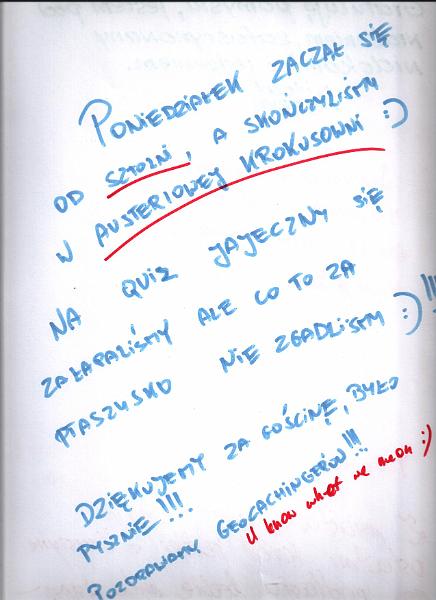 PONIEDZIAŁEK ZACZĄŁ SIĘ
OD SZTOLNI, A SKOŃCZYLIŚMY
W AUSTERIOWEJ KROKUSOWNI :)
NA QUIZ JAJECZNY SIĘ
ZAŁAPALIŚMY ALE CO TO ZA
PTASZYSKO NIE ZGADLIŚMY :) !!!
DZIĘKUJEMY ZA GOŚCINĘ, BYŁO
PYSZNIE !!!
POZDRAWIAMY GEOCACHINGERÓW!!!
U know what we mean :)